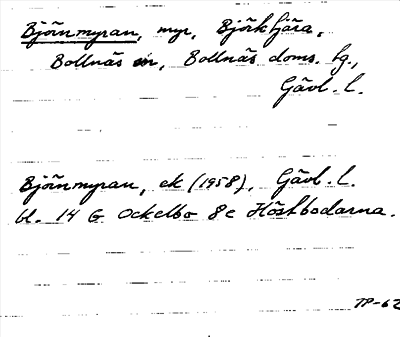 Björnmyran, myr, Björkfjära,
Bollnäs sn, Bollnäs doms. tg.,
Gävl. l.
Björnmyran, ek (1958), Gävl. l.
bl. 14 G Ockelbo 8e Höstbodarna.
TP-62